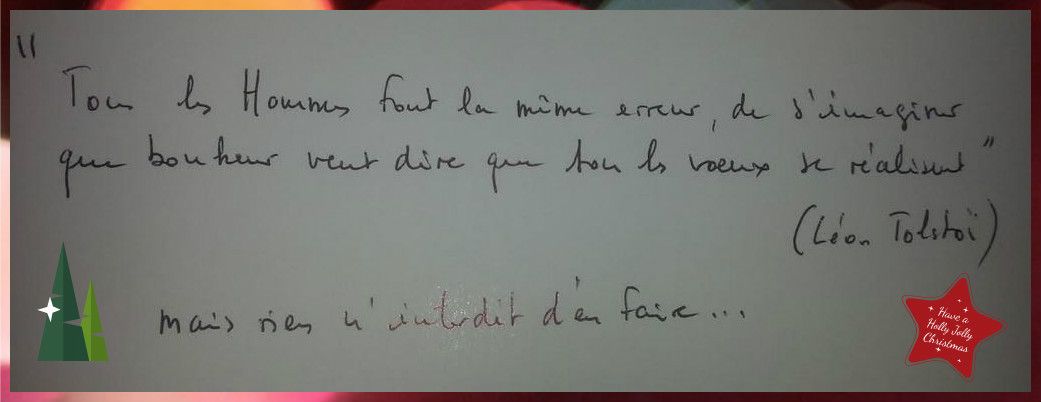 "
Tous les Hommes font la même erreur, de s'imaginer
que bonheur veut dire que tous les voeux se réalisent"
(Léon Tolstoï)
mais rien n'interdit d'en faire...
Have a
Holly Jolly
Christmas